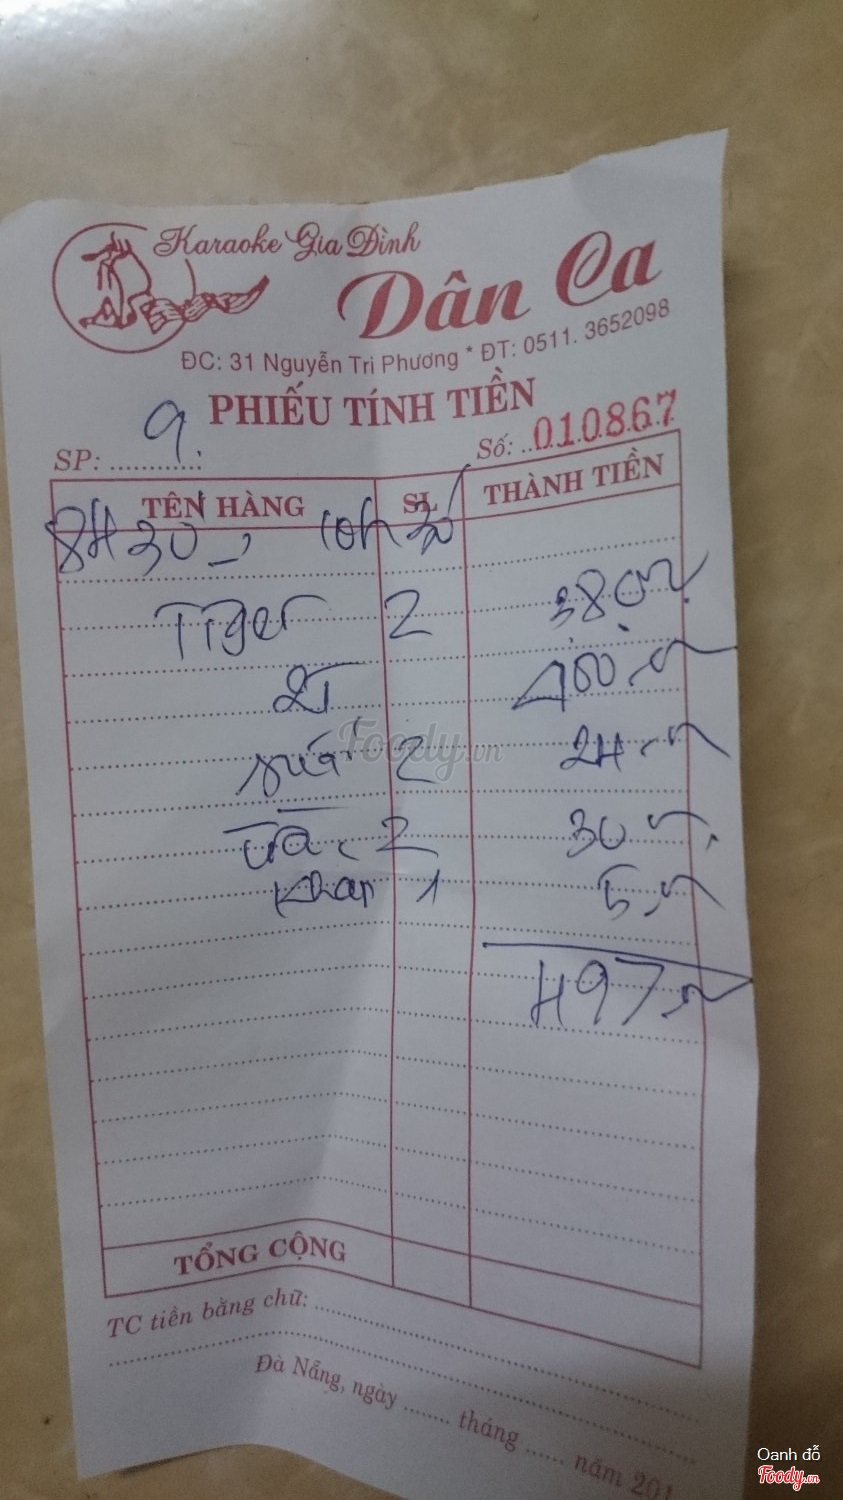 Karaoke Gia Đình
Dân Ca
ĐC: 31 Nguyễn Tri Phương * ĐT: 0511. 3652098
PHIẾU TÍNH TIỀN
SP: 9 Số: 010867
TÊN HÀNG SL THÀNH TIỀN
8H30 → 10h30
Tiger 2 380
2T 400
suối 2 24
2 30
Khăn 1 5
497
TỔNG CỘNG
TC tiền bằng chữ:
Đà Nẵng, ngày ........ tháng ...... năm 201
Foody.vn
Oanh đỗ
Foody.vn